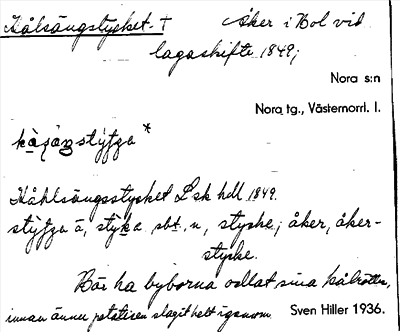 Kålsängstycket. †
Åker i Bol vid
lagaskifte 1849;
Nora s:n
Nora tg., Västernorrl. l.
Kåhlsängsstycket Lsk hdl 1849.
sbst. n, stycke; åker, åker-
stycke.
Bör ha byborna odlat sina kålrötter,
innan ännu potatisen slagit helt igenom. Sven Hiller 1936.